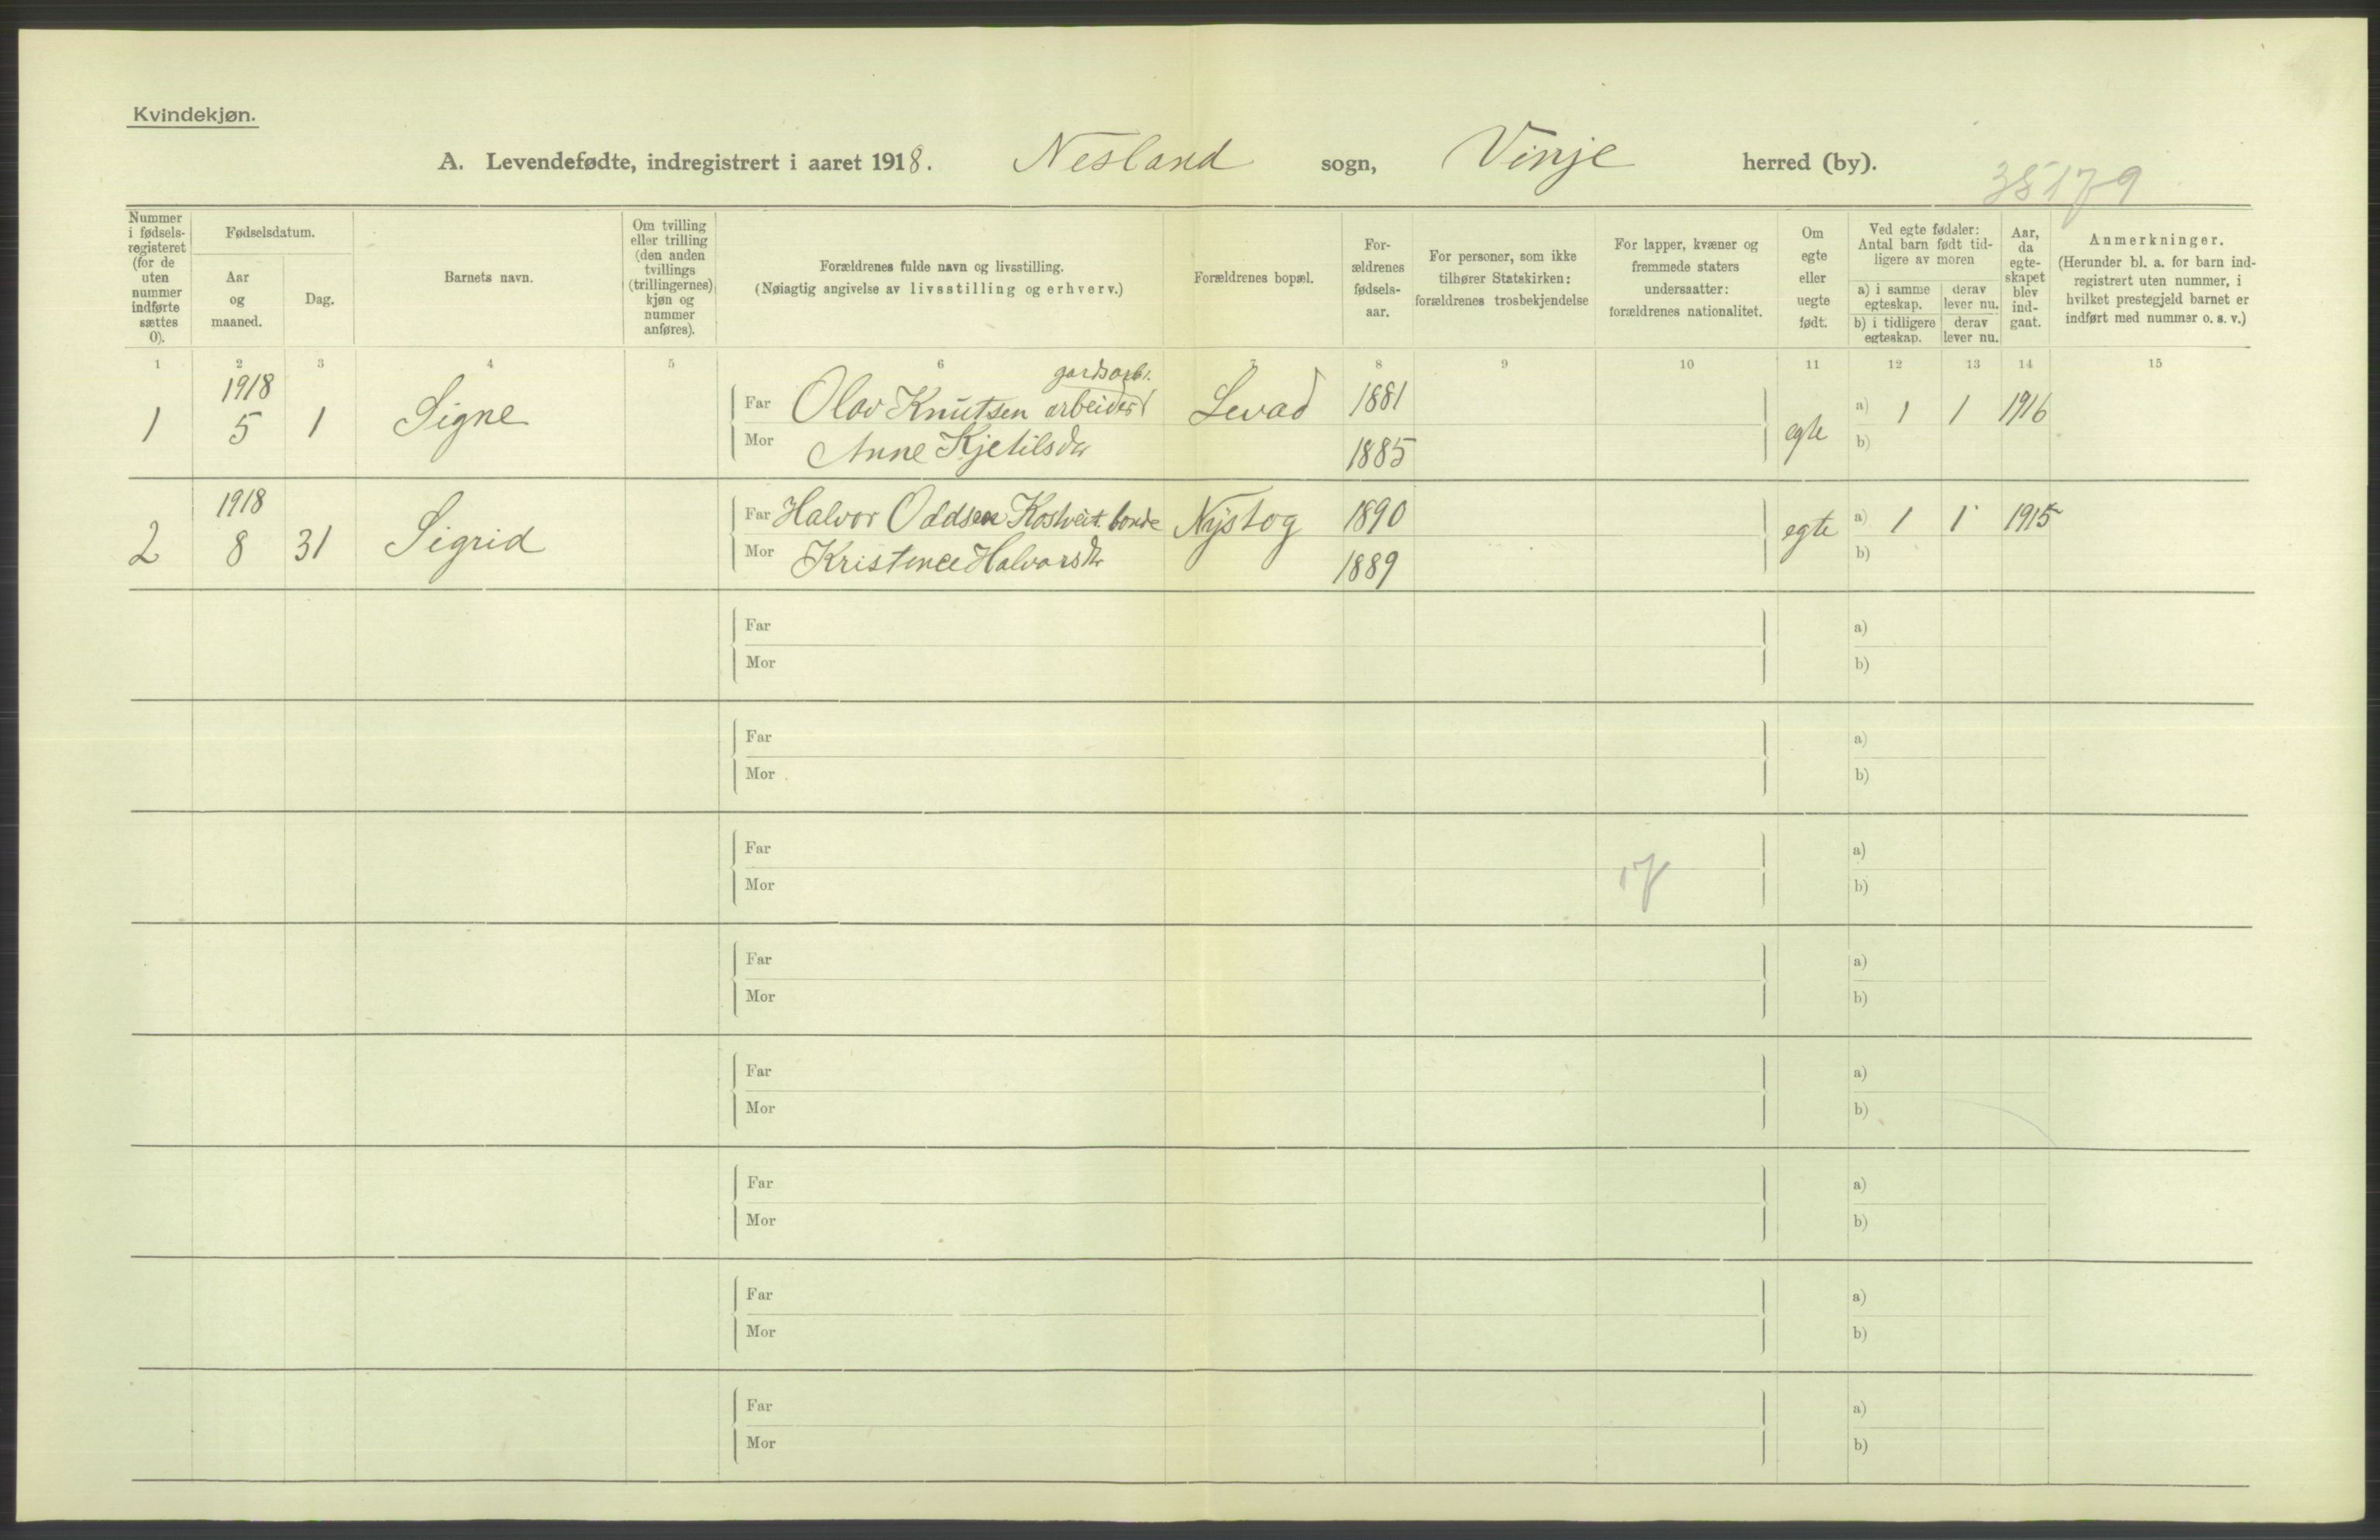 Kvindekjøn.
A. Levendefødte, indregistrert i aaret 1918. Nesland sogn, Vinje herred (by).
35179
Nummer i fødsels-registeret (for de uten nummer indførte sættes 0).
Fødselsdatum.
Aar og maaned.
Dag.
Barnets navn.
Om tvilling eller trilling (den anden tvillings (trillingernes) kjøn og nummer anføres).
Forældrenes fulde navn og livsstilling.
(Nøiagtig angivelse av livsstilling og erhverv.)
Forældrenes bopæl.
For-ældrenes fødsels-aar.
For personer, som ikke tilhører Statskirken: forældrenes trosbekjendelse
For lapper, kvæner og fremmede staters undersaatter: forældrenes nationalitet.
Om egte eller uegte født.
Ved egte fødsler: Antal barn født tid-ligere av moren
a) i samme egteskap. derav lever nu.
b) i tidligere egteskap. derav lever nu.
Aar, da egte-skapet blev ind-gaat.
Anmerkninger.
(Herunder bl. a. for barn ind-registrert uten nummer, i hvilket prestegjeld barnet er indført med nummer o. s. v.)
1 2 3 4 5 6 7 8 9 10 11 12 13 14 15
1918 gardsarb.
1 5 1 Signe Far Olav Knutsen arbeider Levad 1881 egte a) 1 1 1916
Mor Anne Kjetilsdr 1885 b)
1918
2 8 31 Sigrid Far Halvor Oddsen Kostveit. bonde Nystog 1890 egte a) 1 1 1915
Mor Kristence Halvorsdr 1889 b)
Far a)
Mor b)
Far a)
Mor b)
Far a)
17
Mor b)
Far a)
Mor b)
Far a)
Mor b)
Far a)
Mor b)
Far a)
Mor b)
Far a)
Mor b)